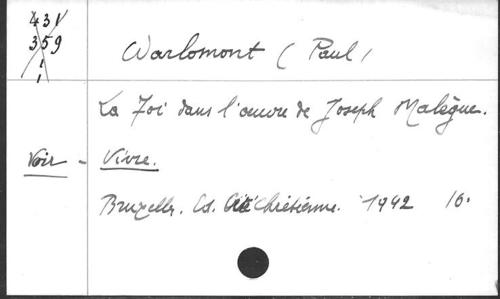 43V
359
1
1
Warlomont (Paul)
La Foi dans l'œuvre de Joseph Malègue.
Voir - Vivre.
Bruxelles. Ed. Cité Chrétienne. 1942 16.